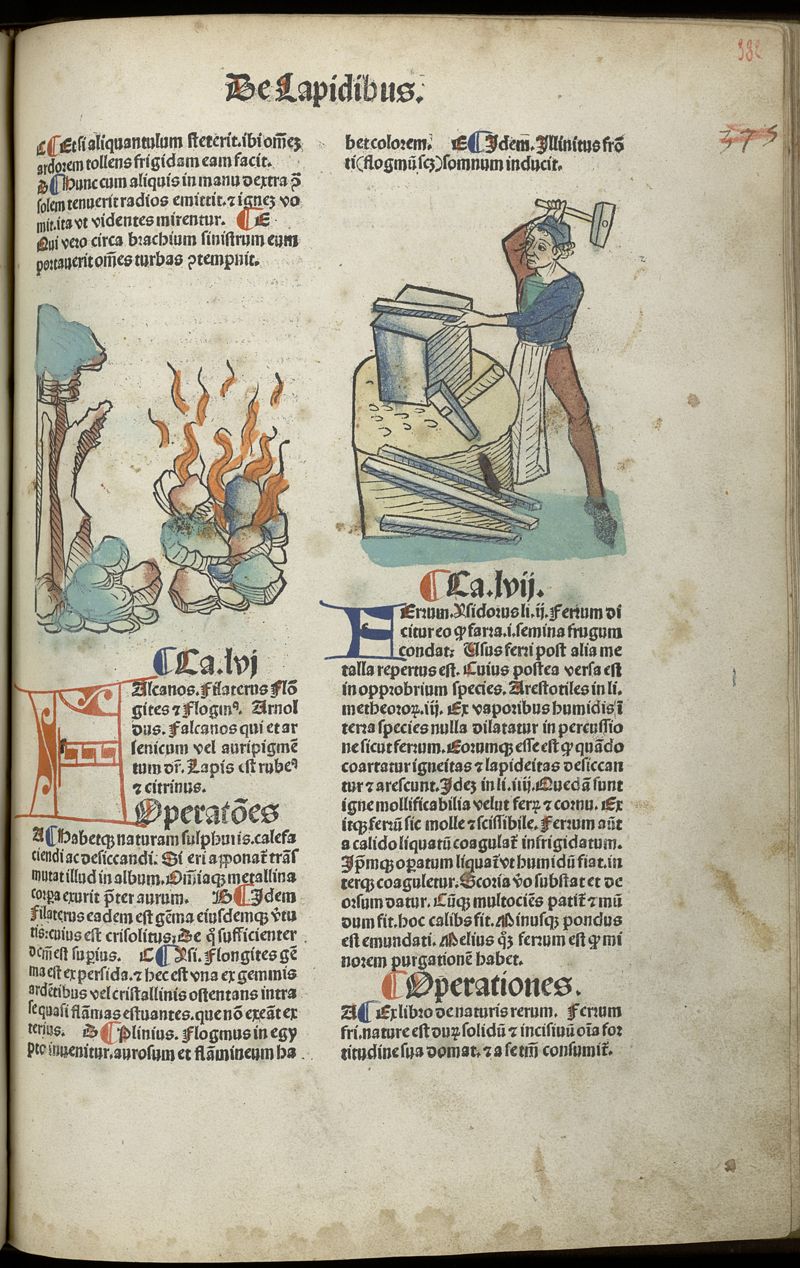 De Lapidibus.
C Et si aliquantulum steterit. ibi om̃eʒ
ardorem tollens frigidam eam facit.
D Hunc cum aliquis in manu dextra ꝓ̄
solem tenuerit radios emittit. ⁊ igneʒ vo
mit. ita vt videntes mirentur. E
Qui vero circa brachium sinistrum eum
portauerit om̃es turbas ꝯtempnit.
Ca. lvj
FAlcanos. Filaterus Flō
gites ⁊ Flogmꝰ. Arnol
dus. Falcanos qui et ar
senicum vel auripigmē
tum dr̄. Lapis est rubeꝰ
⁊ citrinus.
Operatōes
A Habetqꝫ naturam sulphuris. calefa
ciendi ac desiccandi. Si eri apponat᷑ trāſ
mutat illud in album. Om̄iaqꝫ metallina
corꝑa exurit p̄ter aurum. B Idem
Filaterus eadem est gēma eiusdemqꝫ v̓tu
tis: cuius est crisolitus, De q̊ sufficienter
dcm̄ est suꝑius. C Ysi. Flongites gē
ma est ex persida. ⁊ hec est vna ex gemmis
ardētibus vel cristallinis ostentans intra
se quasi flāmas estuantes. que nō exeāt ex
terius. D Plinius. Flogmus in egy
pto inuenitur. aurosum et flāmineum ha
bet colorem. E Idem. Illinitus frō
ti (flogmū scꝫ) somnum inducit.
Ca. lvij.
FErrum. Ysidorus li. ij. Ferrum di
citur eo ꝙ farra .i. semina frugum
condat: Usus ferri post alia me
talla repertus est. Cuius postea versa est
in opprobrium species. Arestotiles in li.
metheoroꝝ. iij. Ex vaporibus humidis ī
terra species nulla dilatatur in percussio
ne sicut ferrum. Eorumqꝫ esse est ꝙ quādo
coartatur igneitas ⁊ lapideitas desiccan
tur ⁊ arescunt. Ideʒ in li. iiij. Quedā sunt
igne mollificabilia velut ferꝝ ⁊ cornu. Ex
itqꝫ ferrū sic molle ⁊ scissibile. Ferrum aūt
a calido liquatū coagulat᷑ infrigidatum.
Ip̄mqꝫ oꝑatum liquat᷑ vt humidū fiat. in
terqꝫ coaguletur. Scoria v̓o substat et de
orsum datur. Cūqꝫ multociēs patit᷑ ⁊ mū
dum fit. hoc calibs fit. Minusqꝫ pondus
est emundati. Melius qꝫ ferrum est ꝙ mi
norem purgationē habet.
Operationes.
A Ex libro de naturis rerum. Ferrum
fri. nature est duꝝ solidū ⁊ incisiuū oīa for
titudine sua domat. ⁊ a se tm̄ consumit᷑.